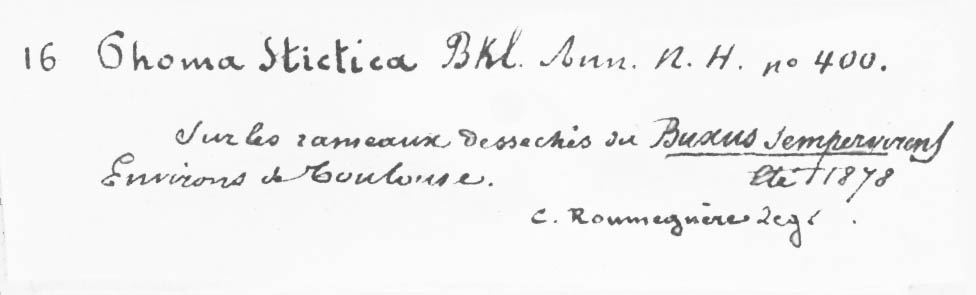 16 Phoma Stictica Bkl. Ann. N. H. no 400.
Sur les rameaux dessechés du Buxus Sempervirens
Environs de Toulouse. Eté 1878
C. Roumeguère Leg.